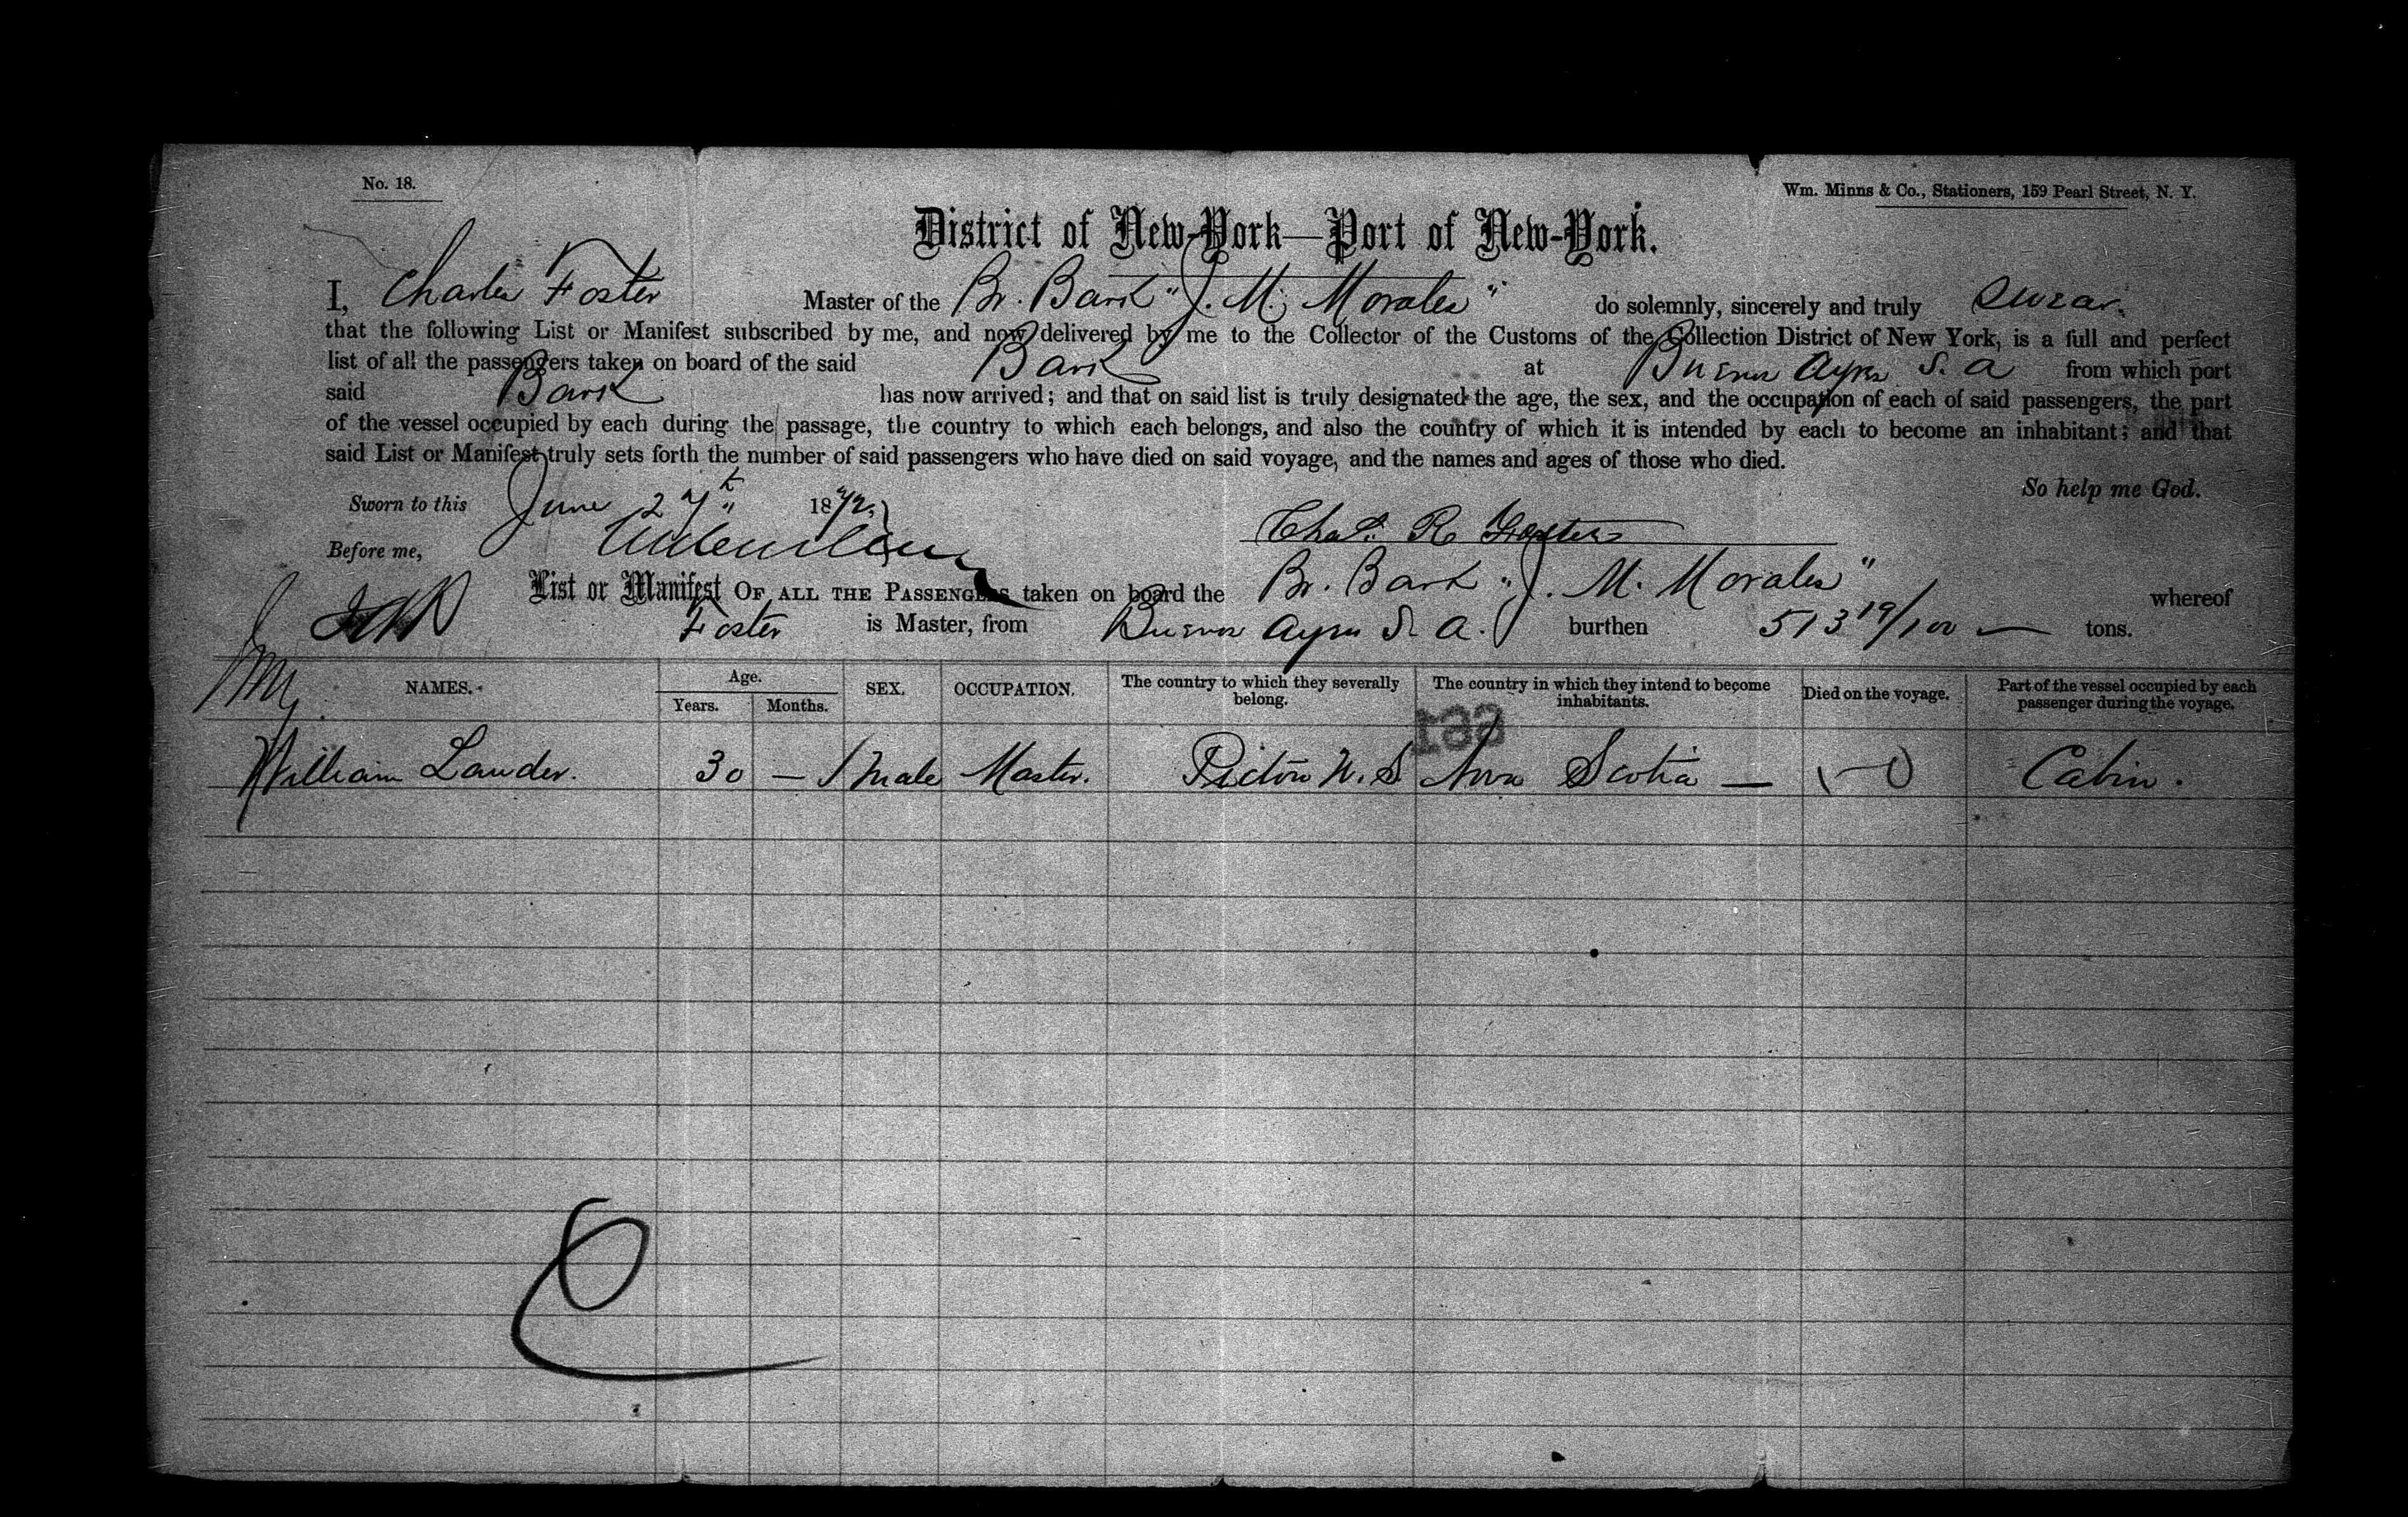 No. 18.
Wm. Minns & Co., Stationers, 159 Pearl Street, N. Y.
District of New-York—Port of New-York.
I, Charles Foster Master of the Br. Bark "J. M. Morales" do solemnly, sincerely and truly swear
that the following List or Manifest subscribed by me, and now delivered by me to the Collector of the Customs of the Collection District of New York, is a full and perfect
list of all the passengers taken on board of the said Bark at Buenos Ayres S. A from which port
said Bark has now arrived; and that on said list is truly designated the age, the sex, and the occupation of each of said passengers, the part
of the vessel occupied by each during the passage, the country to which each belongs, and also the country of which it is intended by each to become an inhabitant; and that
said List or Manifest truly sets forth the number of said passengers who have died on said voyage, and the names and ages of those who died.
So help me God.
Sworn to this June 27th 1872
Chas. R Foster
Before me,
List or Manifest OF ALL THE PASSENGERS taken on board the Br. Bark "J. M. Morales" whereof
Foster is Master, from Buenos Ayres S. A. burthen 513 19/100 — tons.
NAMES. Age. Years. Months. SEX. OCCUPATION. The country to which they severally belong. The country in which they intend to become inhabitants. Died on the voyage. Part of the vessel occupied by each passenger during the voyage.
William Lauder. 30 — Male Master. Pictou N. S. Nova Scotia — Cabin.